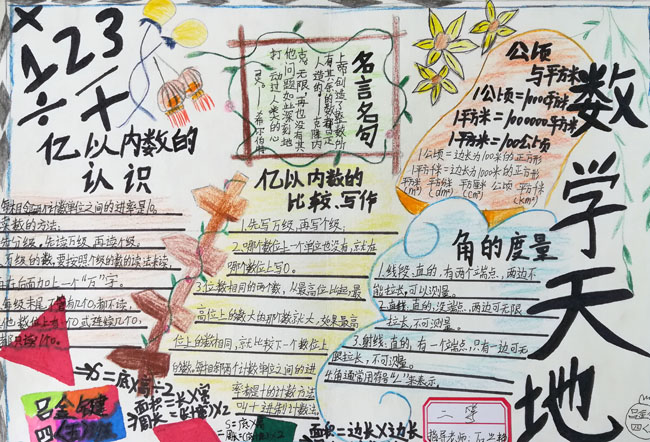 123
×÷+
亿以内数的
认识
每相邻两个计数单位之间的进率是10。
读数的方法:
先分级,先读万级,再读个级。
万级的数,要按照个级的数的读法来读
在后面加上一个“万”字。
每级末尾不管有几个0,都不读,
他数位上有一个0或连续几个0,
都只读1个0。
名言名句
上帝创造了整数,所
有其余的数都是
人造的。——克隆内
克
无限,再也没有其
他问题如此深刻地
打动过人类的心
灵。——希尔伯特
公顷
与平方米
1公顷=10000平方米
1平方千米=1000000平方米
1平方千米=100公顷
1公顷=边长为100米的正方形
平方米 平方分米 平方厘米 公顷 平方千米
(m²) (dm²) (cm²) (km²)
数学天地
亿以内数的
比较.写作
1.先写万级,再写个级;
2.哪个数位上一个单位也没有,就在
哪个数位上写0。
3.位数相同的两个数,从最高位比起,最
高位上的数大的那个数就大,如果最高
位上的数相同,就比较下一个数位上
的数。每相邻两个计数单位之间的进
率都是十的计数方法
叫十进制计数法。
角的度量
1.线段:直的,有两个端点,两边不
能拉长,可以测量。
2.直线:直的,没端点,两边可无限
拉长,不可测量。
3.射线:直的,有一个端点,只有一边可无
限拉长,不可测量。
4.角通常用符号“∠”来表示。
→S=底×高÷2
面积=长×宽
周长=(长+宽)×2
面积=边长×边长
吕金健
四(五)班
二等
指导老师: